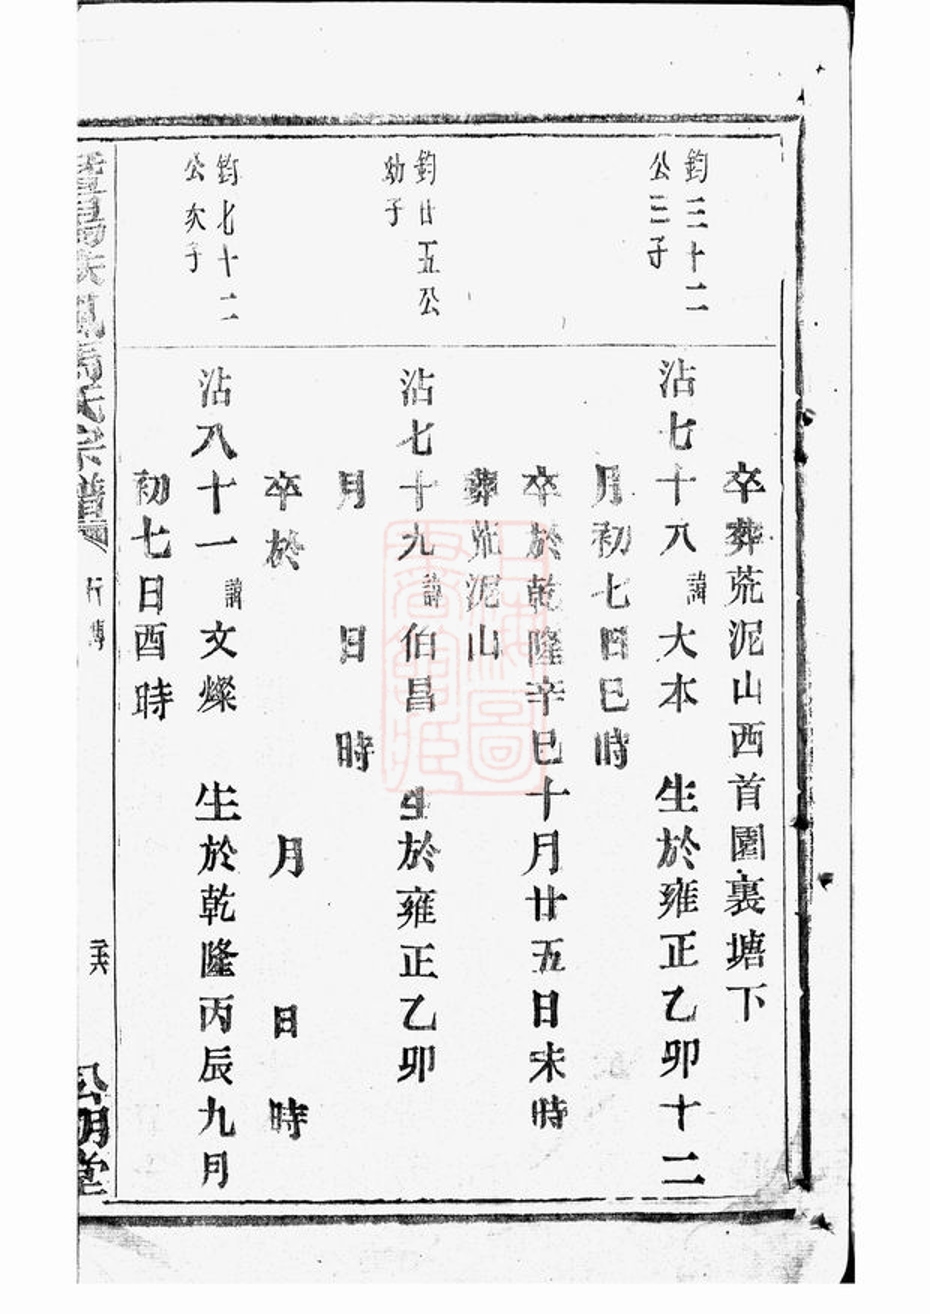 卒葬荒泥山西首園裏塘下
鈞三十二
公三子
沾七十八諱大本　生於雍正乙卯十二
月初七日巳時
卒於乾隆辛巳十月廿五日未時
葬荒泥山
鈞廿五公
幼子
沾七十九諱伯昌　生於雍正乙卯
月　日　時
卒於　月　日　時
鈞七十二
公次子
沾八十一諱文燦　生於乾隆丙辰九月
初七日酉時
暨陽扶風馬氏宗譜
行傳
公明堂